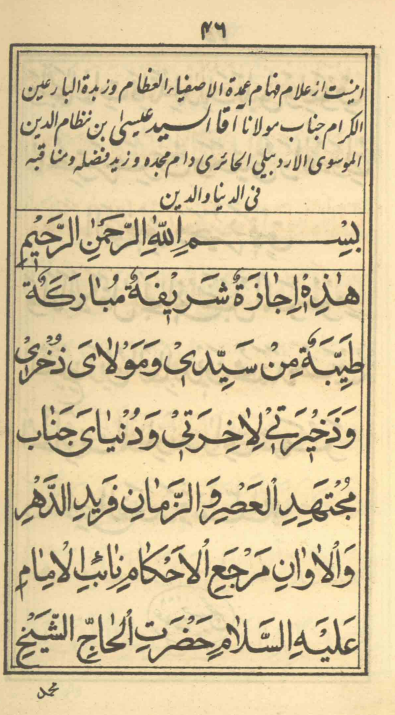 ۴۶
اینست از علام فهام عمدة الاصفیاء العظام وزبدة البارعین
الکرام جناب مولانا آقا السید عیسیٰ بن نظام الدین
الموسوی الاردبیلی الحائری دام مجده وزید فضله ومناقبه
فی الدنیا والدین
بِسْمِ اللّٰهِ الرَّحْمٰنِ الرَّحِیْمِ
هٰذِهٖ اِجَازَةٌ شَرِیْفَةٌ مُبَارَکَةٌ
طَیِّبَةٌ مِنْ سَیِّدِیْ وَمَوْلَایَ ذُخْرِیْ
وَذَخِیْرَتِیْ لِاٰخِرَتِیْ وَدُنْیَایَ جَنَابِ
مُجْتَهِدِ الْعَصْرِ وَالزَّمَانِ فَرِیْدِ الدَّهْرِ
وَالْاَوَانِ مَرْجَعِ الْاَحْکَامِ نَائِبِ الْاِمَامِ
عَلَیْهِ السَّلَامُ حَضْرَتِ الْحَاجِّ الشَّیْخِ
محمد